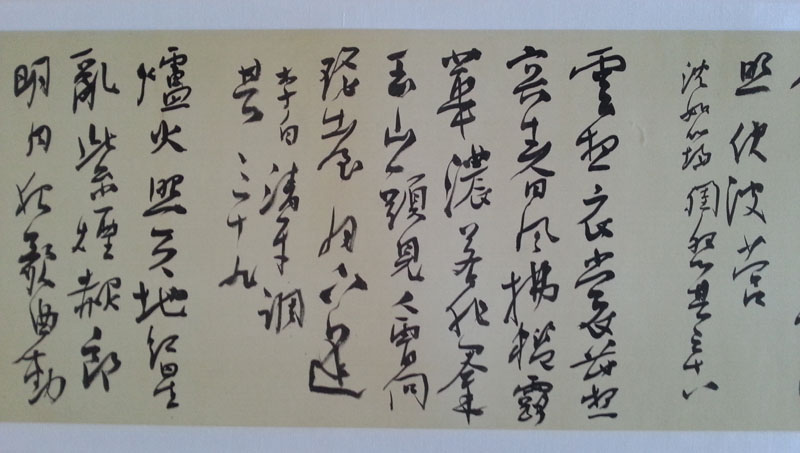 照伏波營
沈如筠 閨怨 其三十八
雲想衣裳花想
容春風拂檻露
華濃若非羣
玉山頭見會向
瑤臺月下逢
李白 清平調
其三十九
爐火照天地紅星
亂紫煙赧郎
明月夜歌曲動